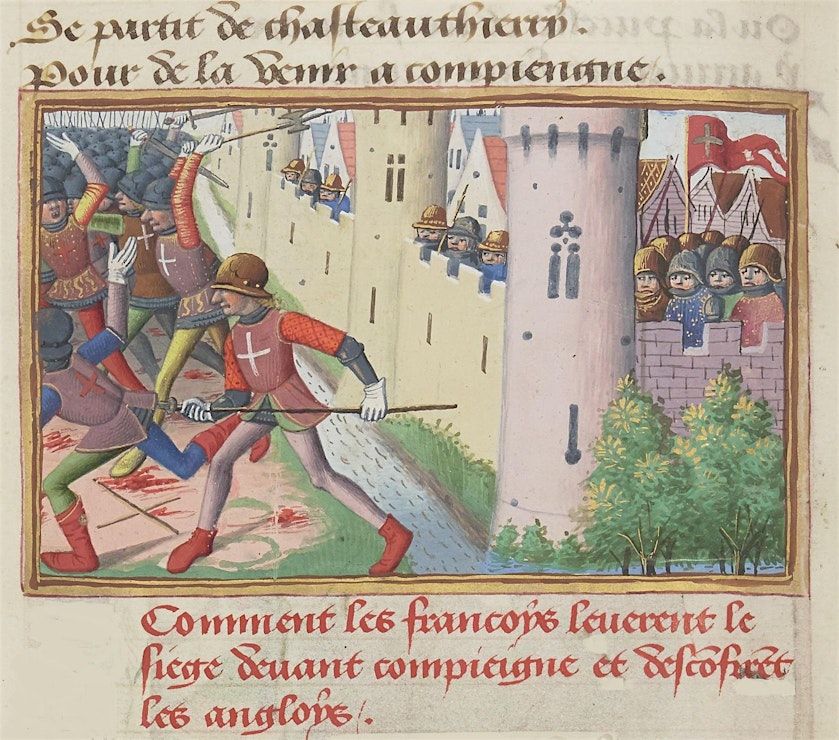 Se partit de chasteauthierry.
Pour de la venir a compiengne.
Comment les francoys leuerent le
siege deuant compieigne et descõfirẽt
les angloys.